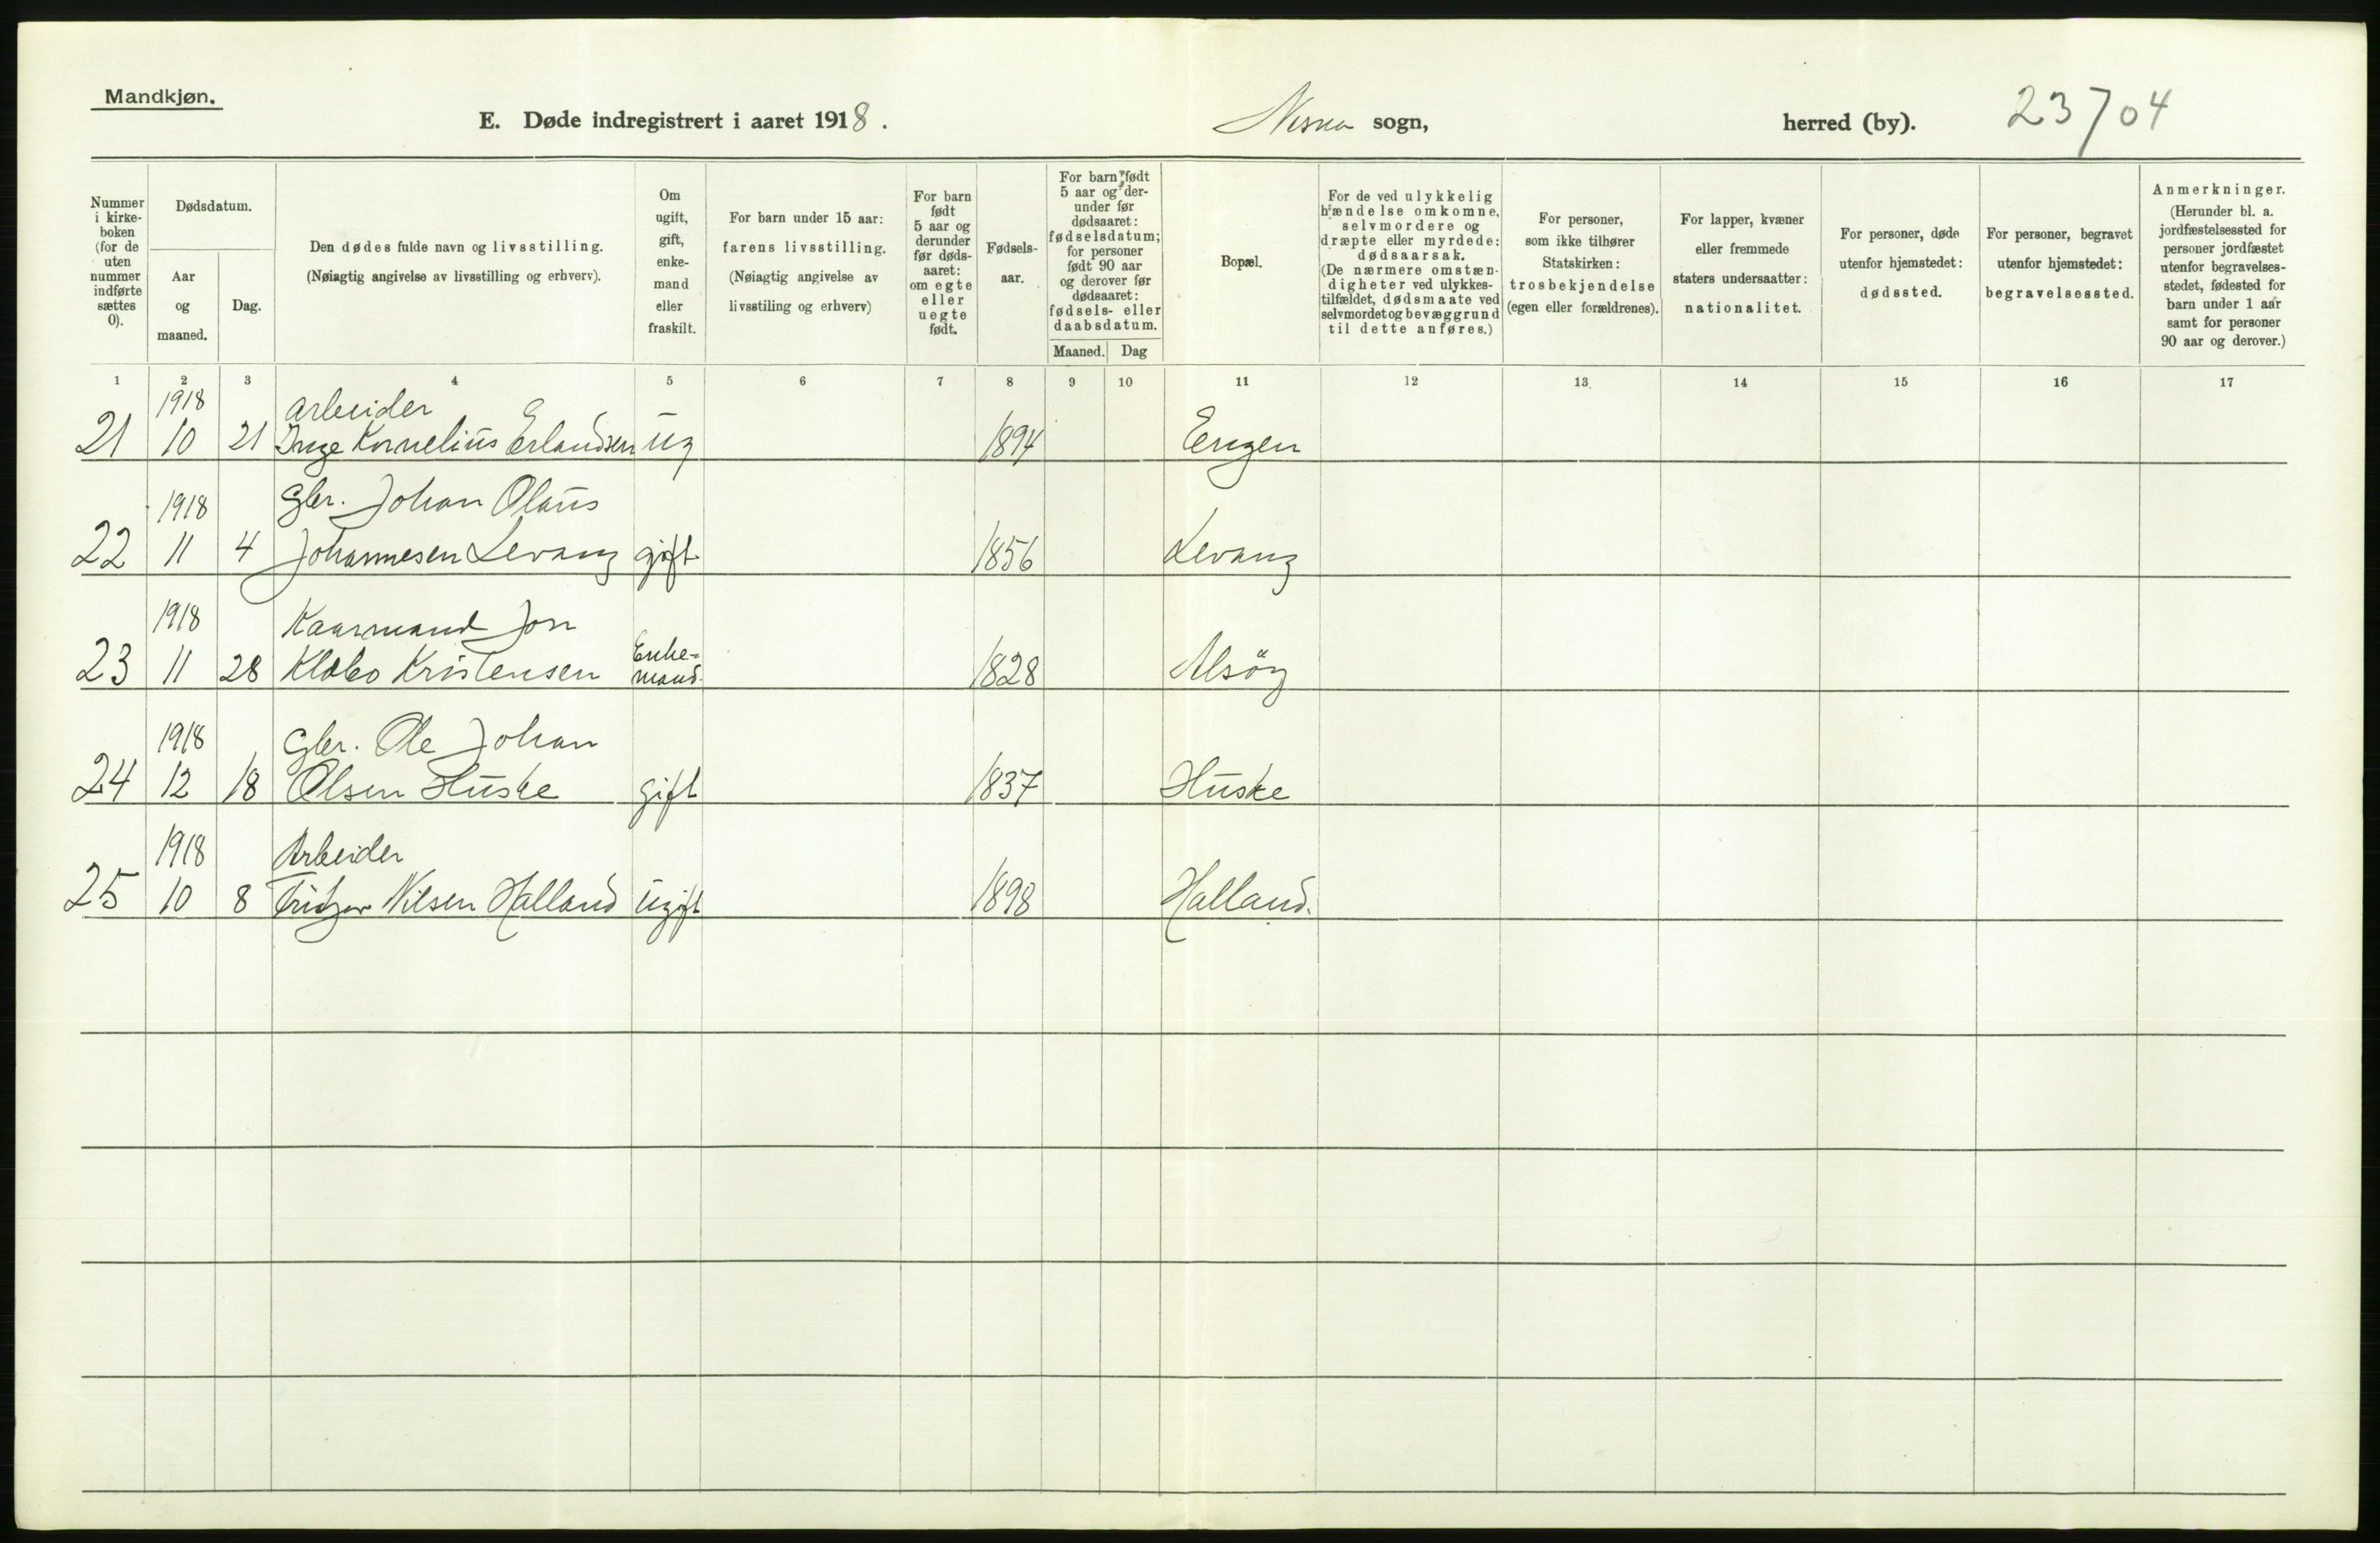 Mandkjøn.
E. Døde indregistrert i aaret 1918. Nesna sogn, herred (by). 23/04
Nummer i kirkeboken (for de uten nummer indførte sættes 0).
Dødsdatum.
Aar og maaned.
Dag.
Den dødes fulde navn og livsstilling.
(Nøiagtig angivelse av livsstilling og erhverv).
Om ugift, gift, enkemand eller fraskilt.
For barn under 15 aar:
farens livsstilling.
(Nøiagtig angivelse av livsstiling og erhverv)
For barn født 5 aar og derunder før dødsaaret: om egte eller uegte født.
Fødselsaar.
For barn født 5 aar og derunder før dødsaaret: fødselsdatum; for personer født 90 aar og derover før dødsaaret: fødsels- eller daabsdatum.
Maaned. Dag
Bopæl.
For de ved ulykkelig hændelse omkomne, selvmordere og dræpte eller myrdede: dødsaarsak.
(De nærmere omstændigheter ved ulykkestilfældet, dødsmaate ved selvmordet og bevæggrund til dette anføres.)
For personer, som ikke tilhører Statskirken: trosbekjendelse (egen eller forældrenes).
For lapper, kvæner eller fremmede staters undersaatter: nationalitet.
For personer, døde utenfor hjemstedet: dødssted.
For personer, begravet utenfor hjemstedet: begravelsessted.
Anmerkninger.
(Herunder bl. a. jordfæstelsessted for personer jordfæstet utenfor begravelsesstedet, fødested for barn under 1 aar samt for personer 90 aar og derover.)
1 2 3 4 5 6 7 8 9 10 11 12 13 14 15 16 17
1918 Arbeider
21 10 21 Inge Kornelius Erlandsen ug 1894 Engen
1918 Gbr. Johan Olaus
22 11 4 Johannesen Levang gift 1856 Levang
1918 Kaarmand Jon
23 11 28 Klæbo Kristensen Enkemand. 1828 Alsøy
1918 Gbr. Ole Johan
24 12 18 Olsen Huske gift 1837 Huske
1918 Arbeider
25 10 8 Nilsen Halland ugift 1898 Halland.